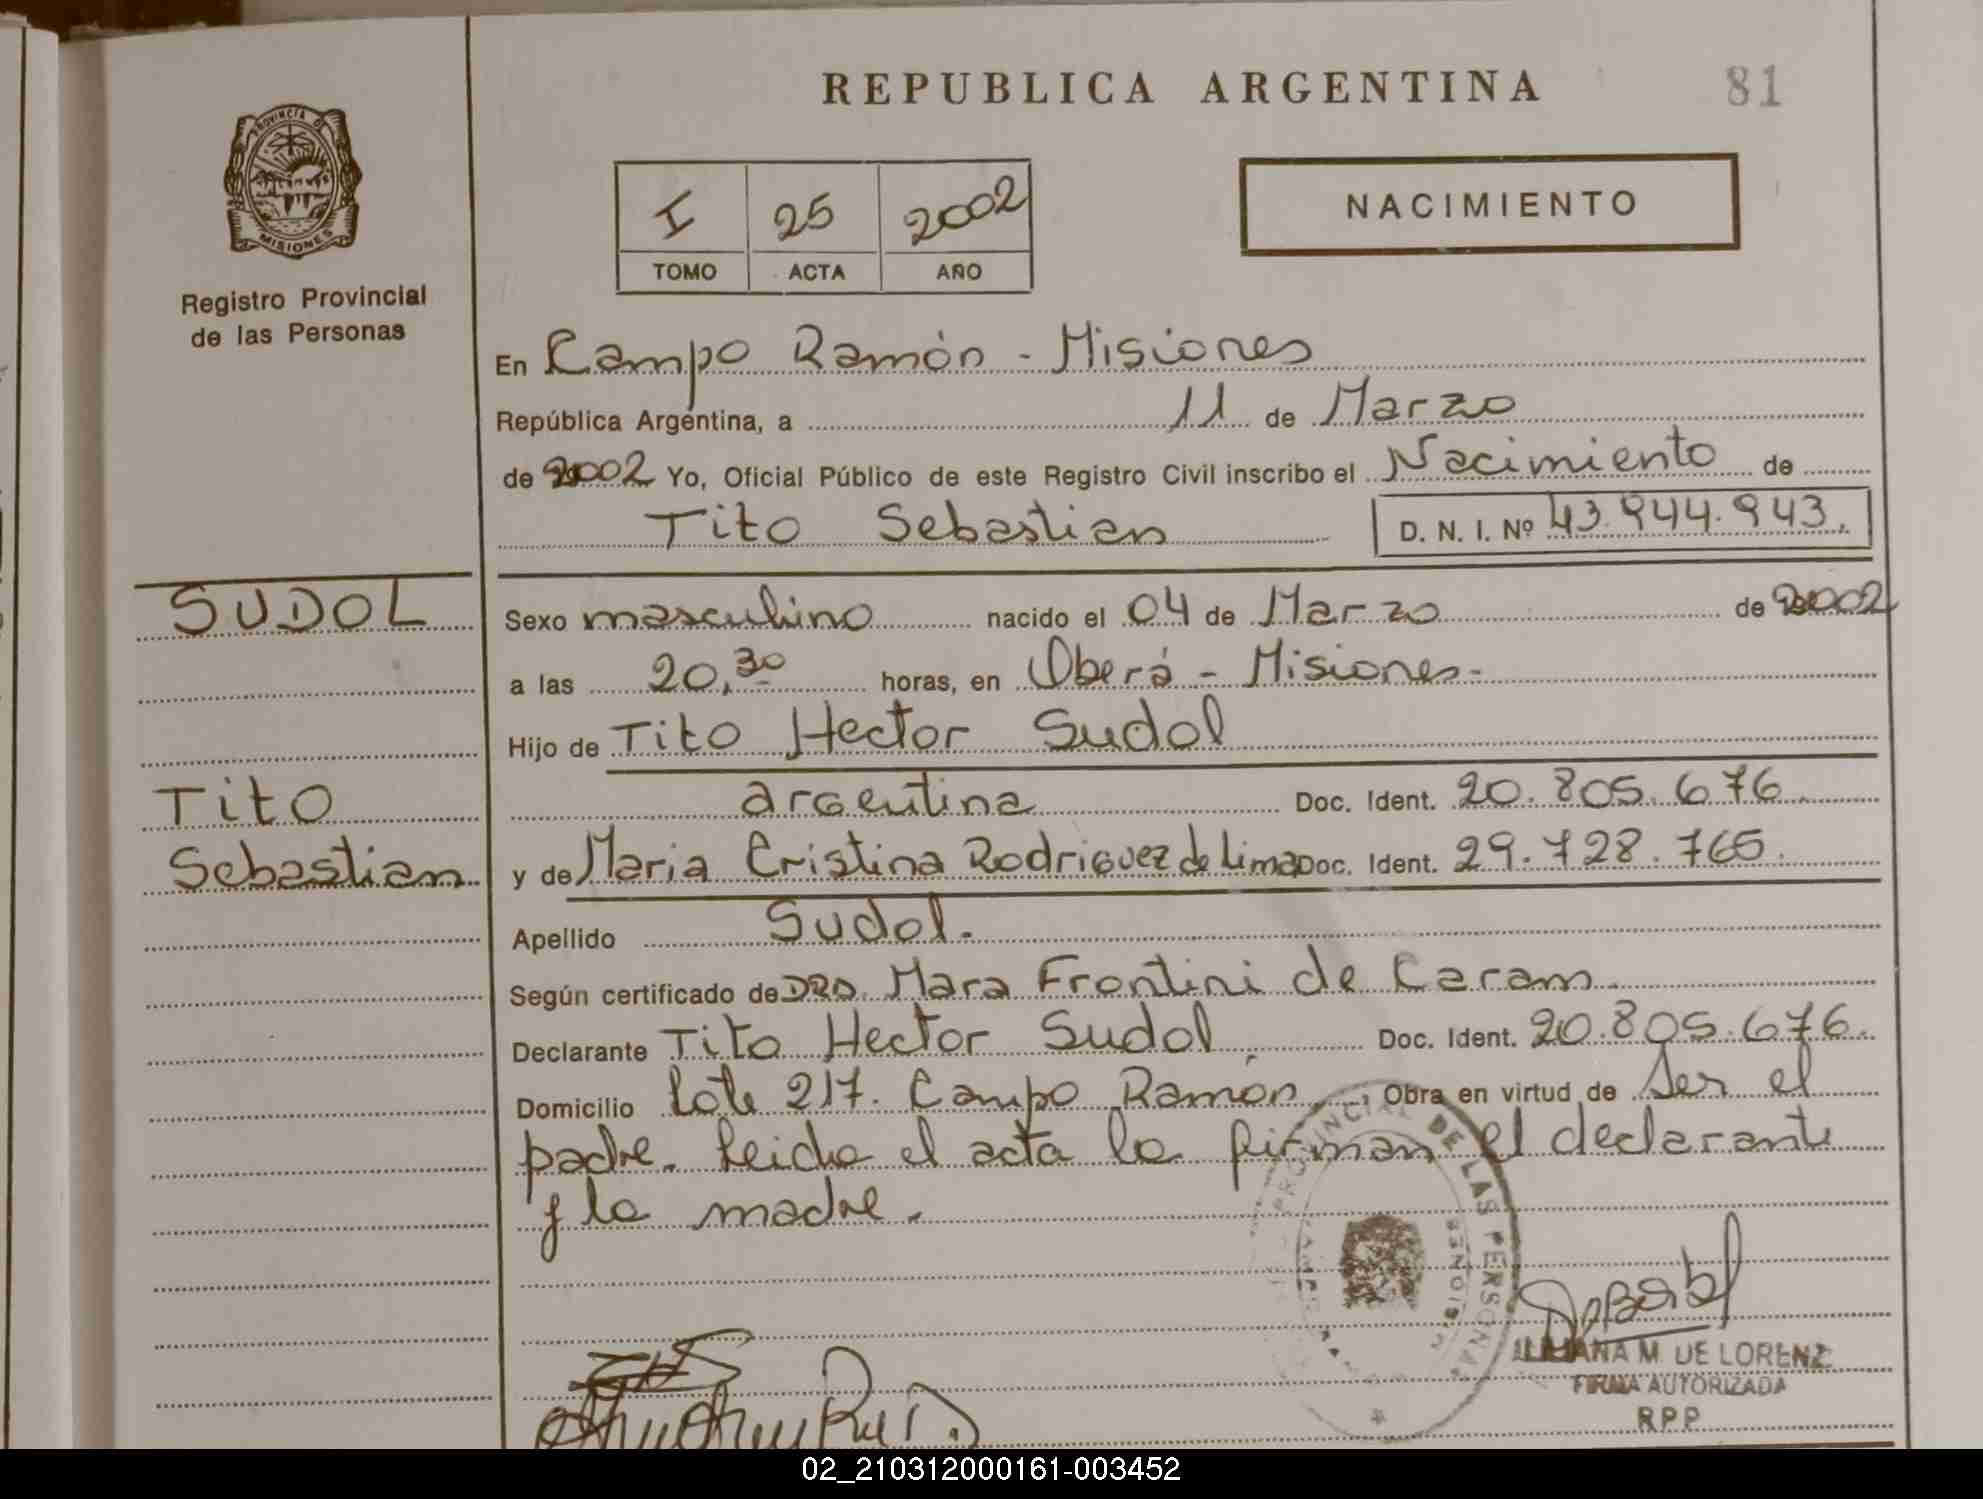 REPUBLICA ARGENTINA
81
PROVINCIA DE
MISIONES
Registro Provincial
de las Personas
I 25 2002
TOMO ACTA AÑO
NACIMIENTO
En Campo Ramón - Misiones
República Argentina, a 11 de Marzo
de 2002 Yo, Oficial Público de este Registro Civil inscribo el Nacimiento de
Tito Sebastian D. N. I. Nº 43.944.943.
SUDOL
Tito
Sebastian
Sexo masculino nacido el 04 de Marzo de 2002
a las 20,30 horas, en Oberá - Misiones-
Hijo de Tito Hector Sudol
argentina Doc. Ident. 20.805.676
y de Maria Cristina Rodriguez de Lima Doc. Ident. 29.728.765.
Apellido Sudol.
Según certificado de DRA. Mara Frontini de Caram.
Declarante Tito Hector Sudol Doc. Ident. 20.805.676.
Domicilio Lote 217. Campo Ramón, Obra en virtud de Ser el
padre. Leida el acta la firman el declarante
y la madre.
PROVINCIAL DE LAS PERSONAS
MISIONES
LILIANA M. DE LORENZ
FIRMA AUTORIZADA
RPP
02_210312000161-003452